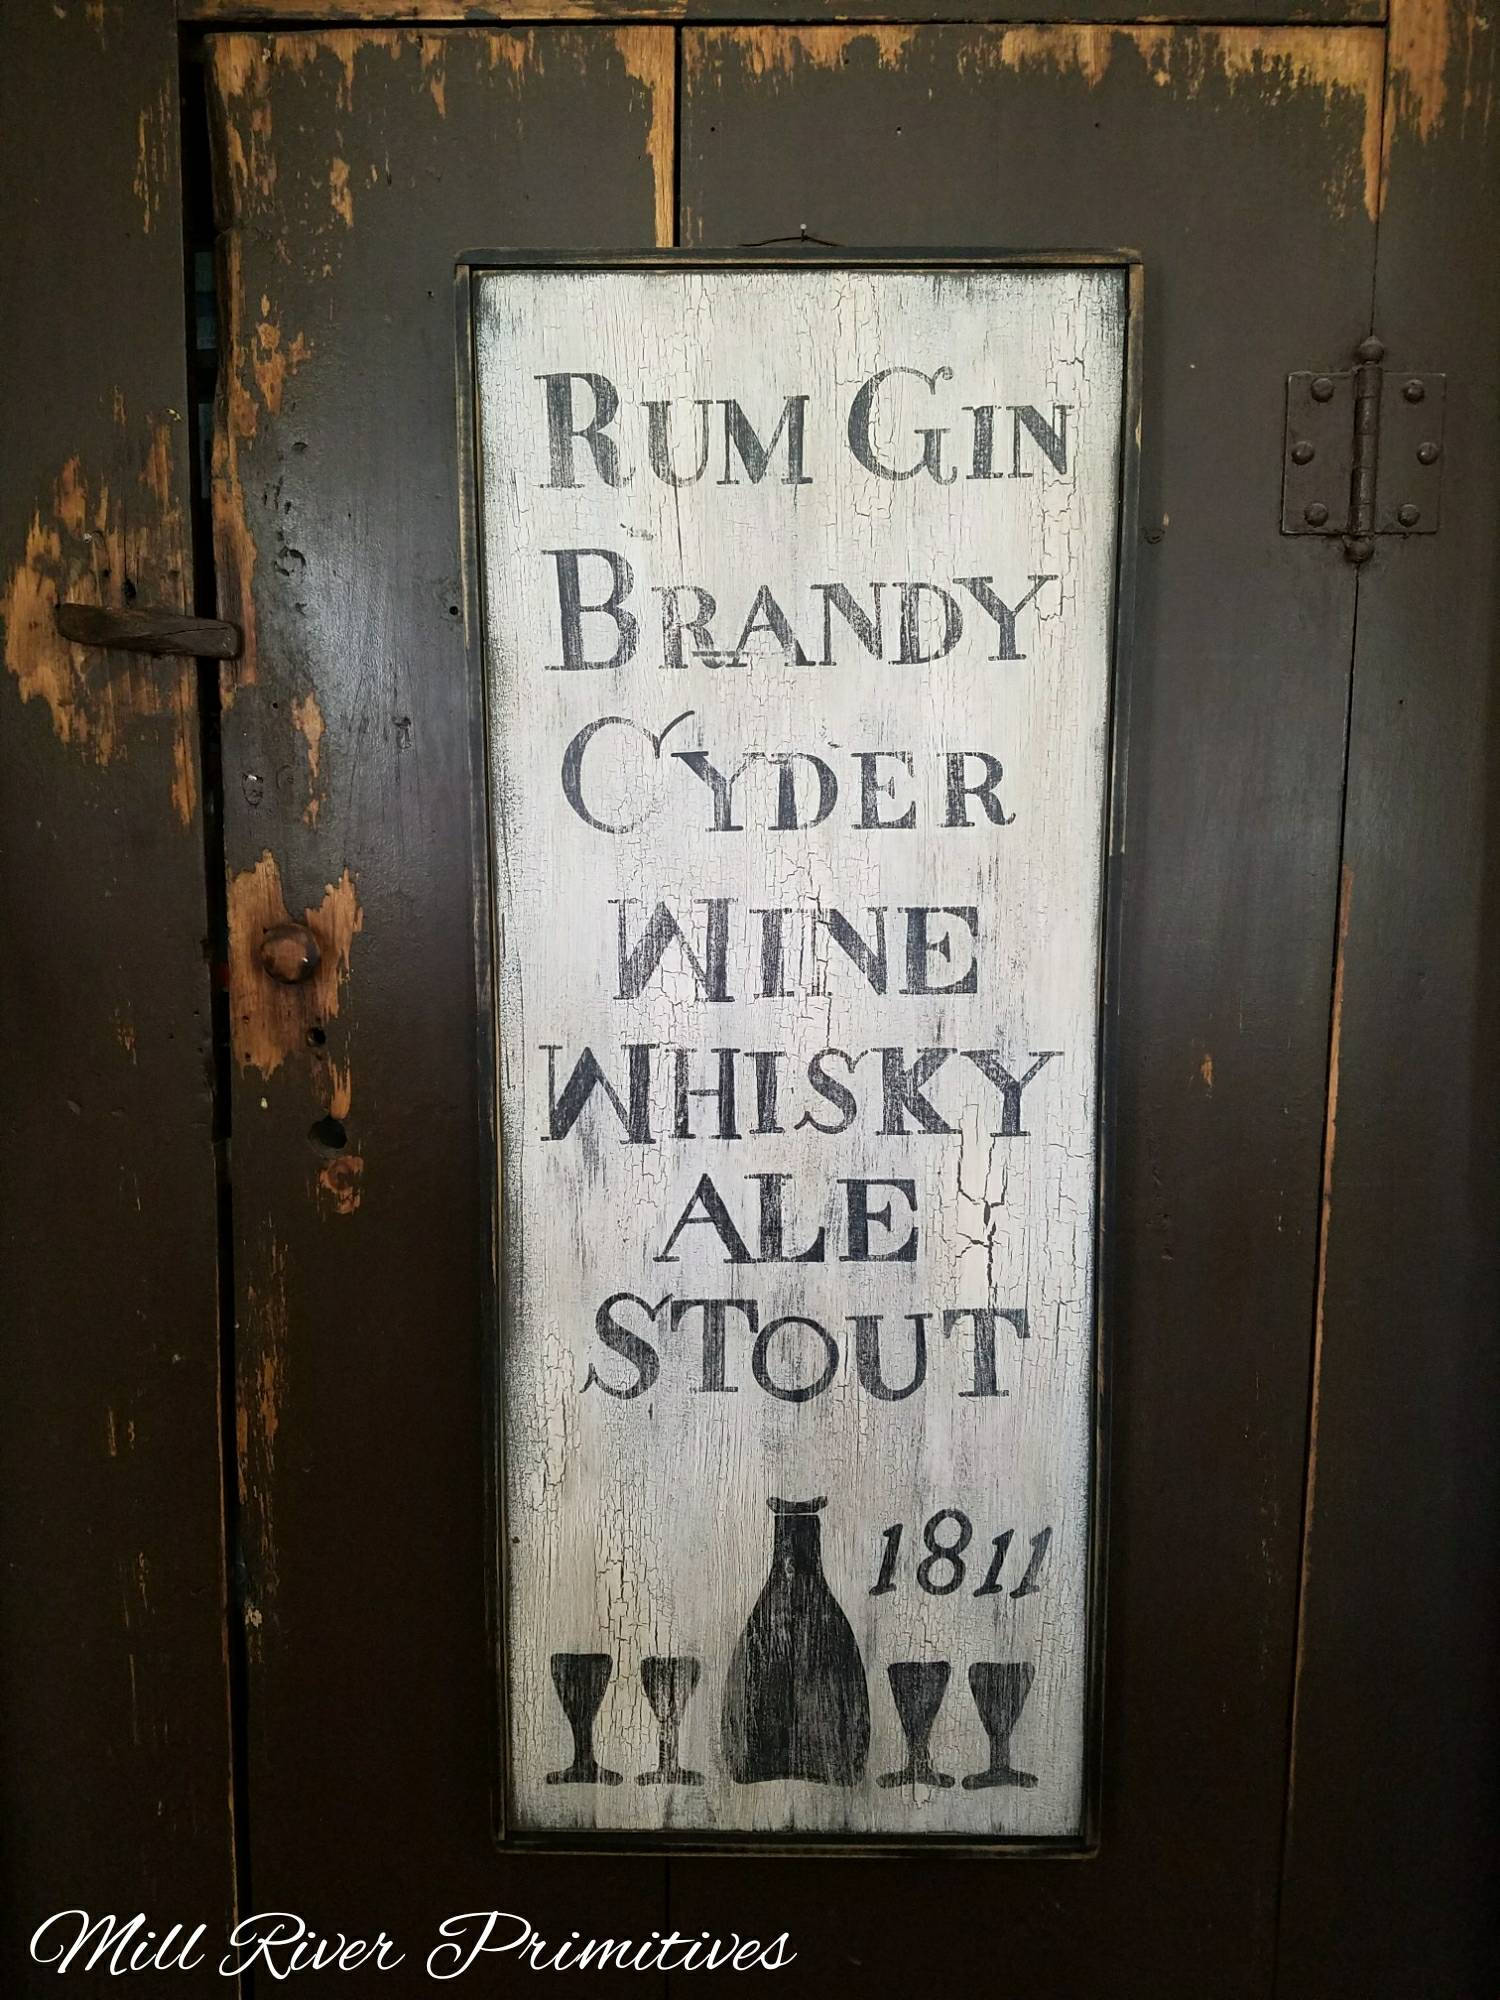 RUM GIN
BRANDY
CYDER
WINE
WHISKY
ALE
STOUT
1811
Mill River Primitives